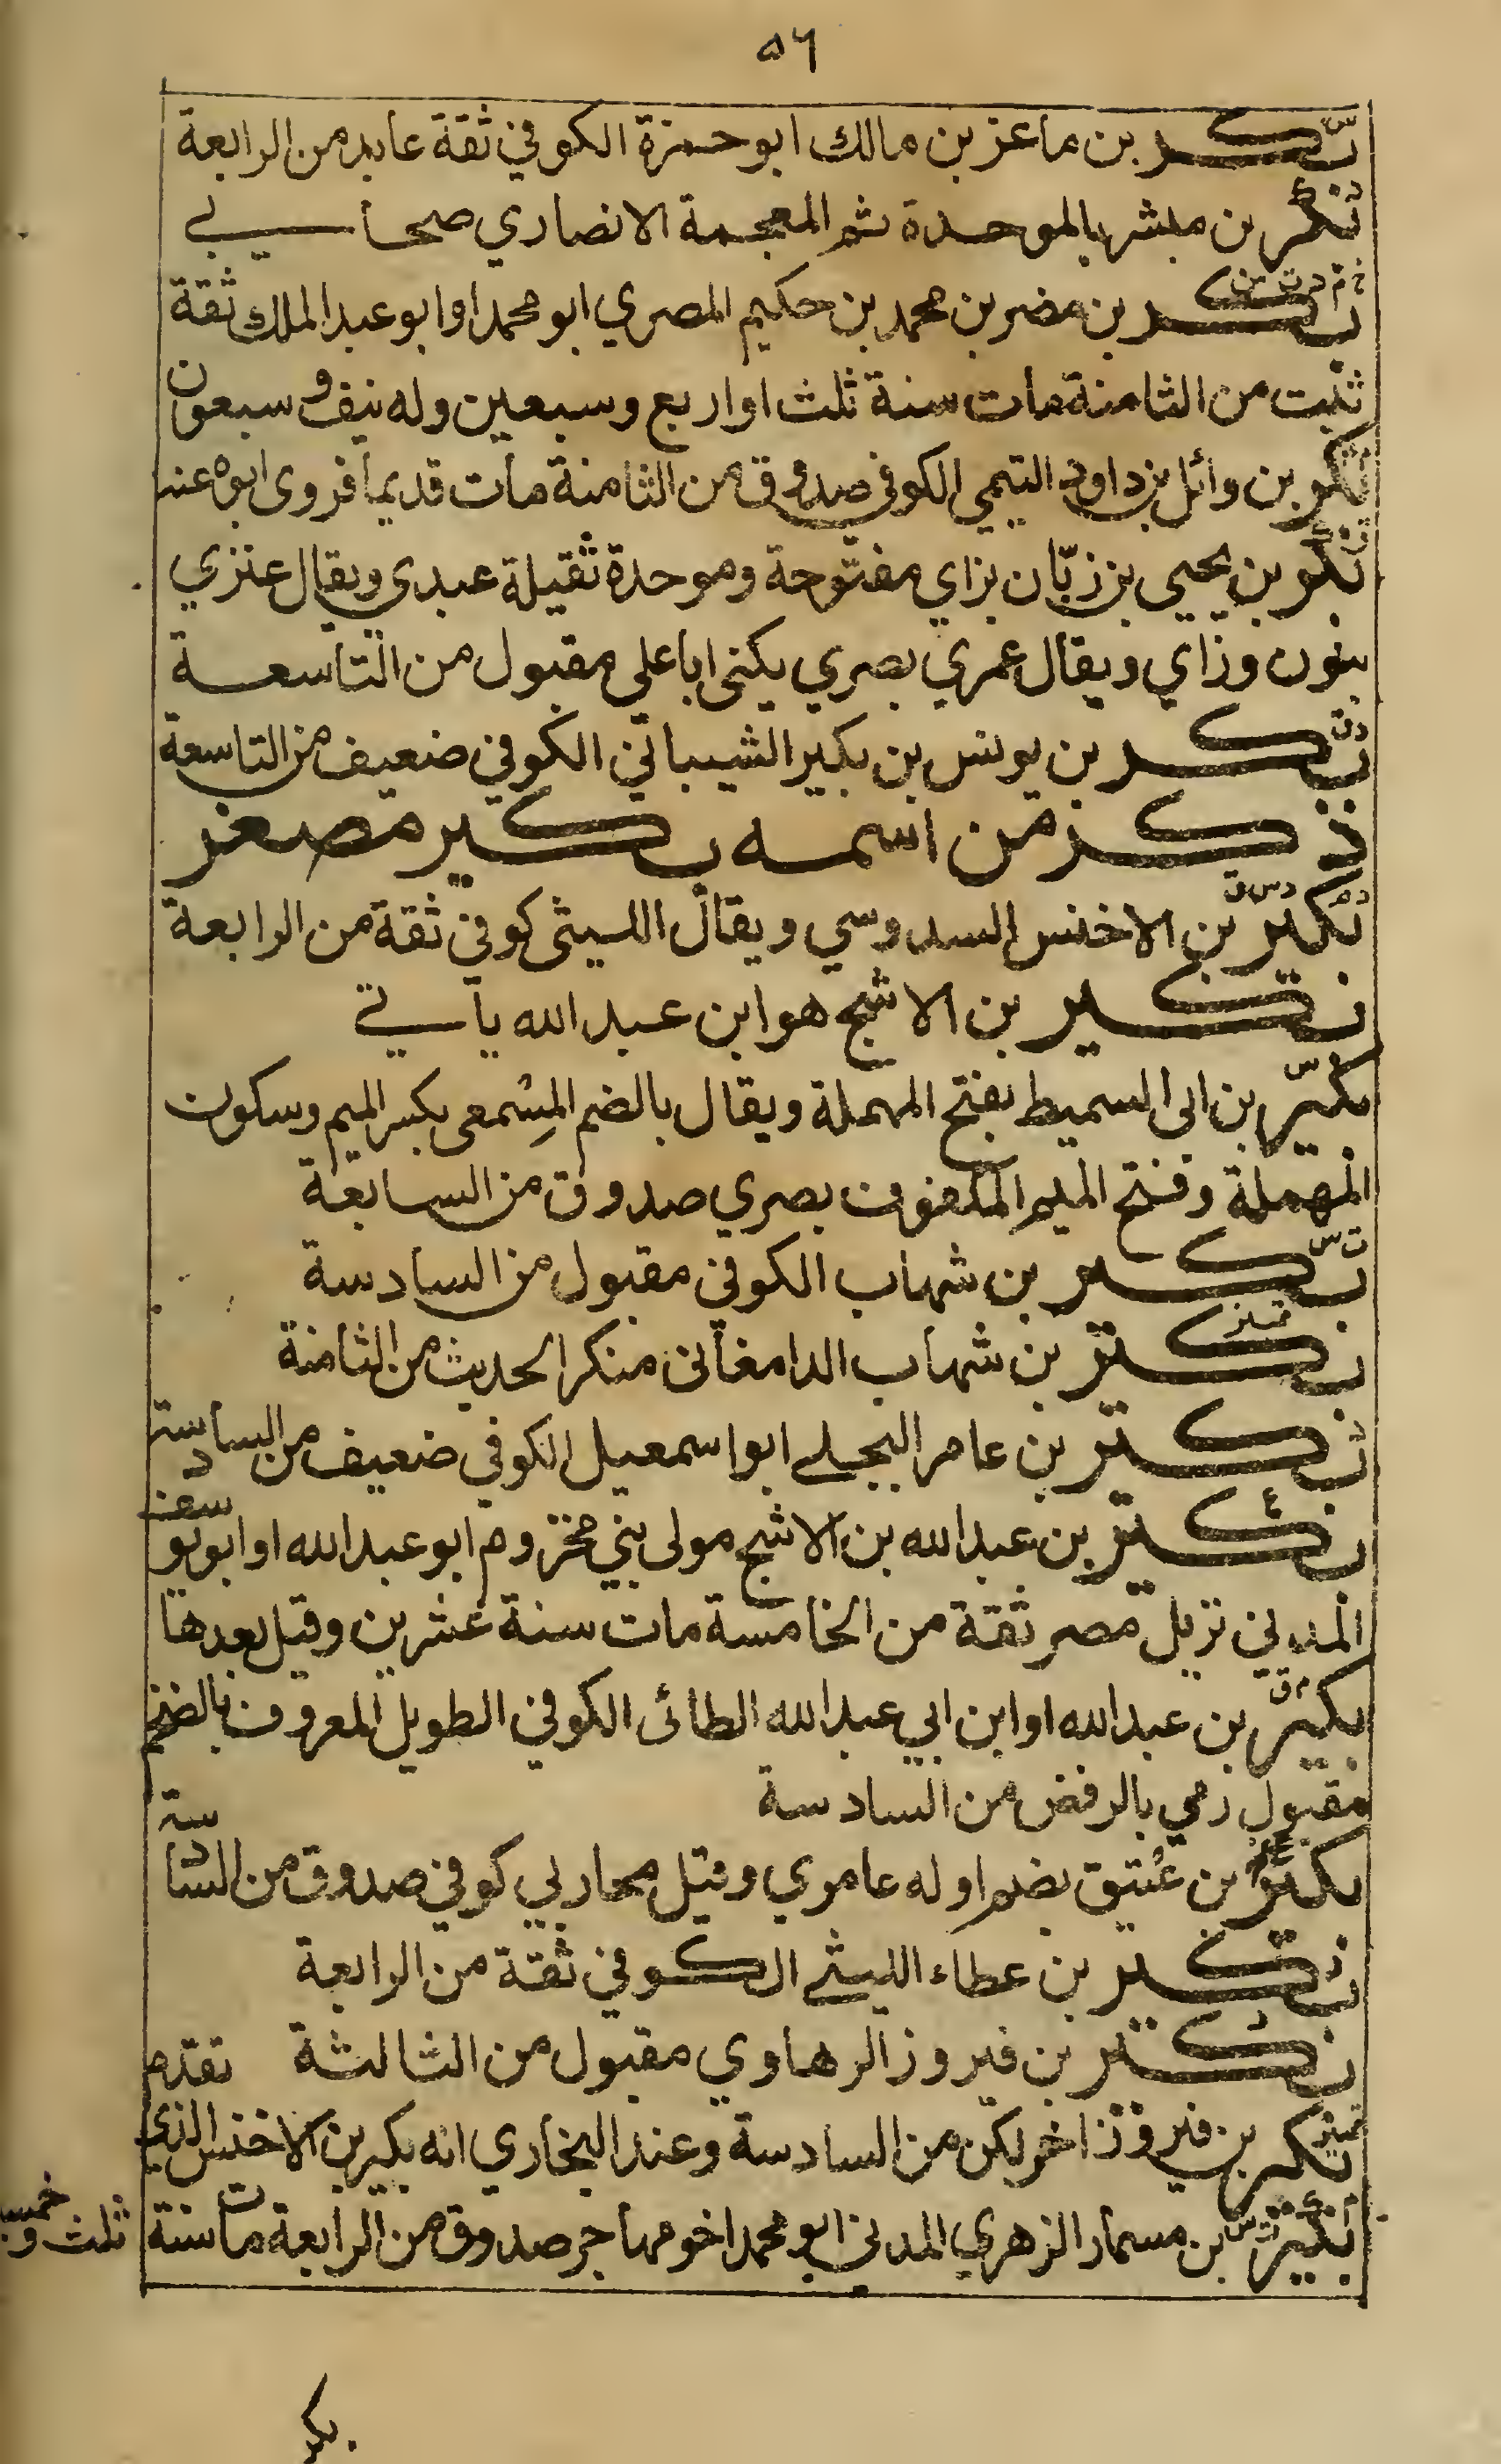 ٥٦
بكر بن ماعز بن مالك ابو حمزة الكوفي ثقة عابد من الرابعة
بكر بن مبشر بالموحدة ثم المعجمة الانصاري صحابي
بكر بن مضر بن محمد بن حكيم المصري ابو محمد او ابو عبد الملك ثقة
ثبت من الثامنة مات سنة ثلث او اربع وسبعين وله نيف وسبعون
بكر بن وائل بن داود التيمي الكوفي صدوق من الثامنة مات قديما فروى ابوه عنه
بكر بن يحيى بن زبّان بزاي مفتوحة وموحدة ثقيلة عبدي ويقال عنزي
بنون وزاي ويقال عمري بصري يكنى ابا علي مقبول من التاسعة
بكر بن يونس بن بكير الشيباني الكوفي ضعيف من التاسعة
ذكر من اسمه بكير مصغر
بكير بن الاخنس السدوسي ويقال الليثي كوفي ثقة من الرابعة
بكير بن الاشج هو ابن عبد الله ياتي
بكير بن ابي السميط بفتح المهملة ويقال بالضم المِسْمعي بكسر الميم وسكون
المهملة وفتح الميم المكفوف بصري صدوق من السابعة
ت س بكير بن شهاب الكوفي مقبول من السادسة
تمييز بكير بن شهاب الدامغاني منكر الحديث من الثامنة
بكير بن عامر البجلي ابو اسمعيل الكوفي ضعيف من السادسة
ع بكير بن عبد الله بن الاشج مولى بني مخزوم ابو عبد الله او ابو يوسف
المدني نزيل مصر ثقة من الخامسة مات سنة عشرين وقيل بعدها
م ق بكير بن عبد الله او ابن ابي عبد الله الطائي الكوفي الطويل المعروف بالضخم
مقبول رمي بالرفض من السادسة
بكير بن عُتيق بضم اوله عامري وقيل محاربي كوفي صدوق من السادسة
بكير بن عطاء الليثي الكوفي ثقة من الرابعة
بكير بن فيروز الرهاوي مقبول من الثالثة
تمييز بكير بن فيروز اخر لكن من السادسة وعند البخاري انه بكير بن الاخنس الذي تقدم
بكير بن مسمار الزهري المدني ابو محمد اخو مهاجر صدوق من الرابعة مات سنة ثلث وخمسين
بكير